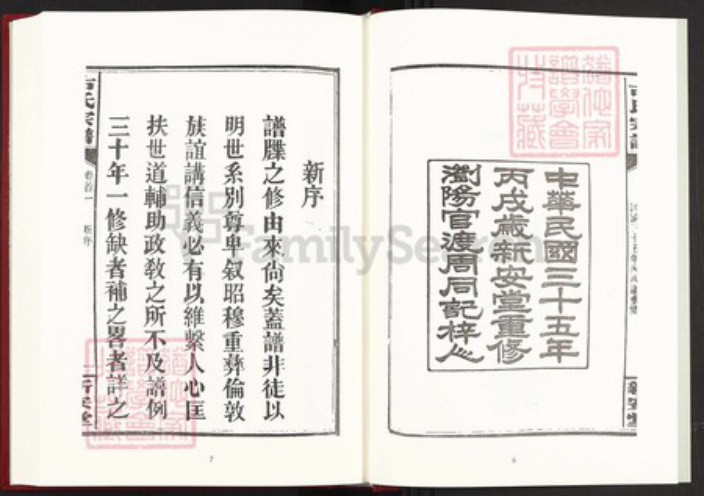 中華民國三十五年
丙戌歲新安堂重修
瀏陽官渡周同記梓人
新安堂
6
新序
譜牒之修由來尙矣蓋譜非徒以
明世系別尊卑敘昭穆重彝倫敦
族誼講信義必有以維繫人心匡
扶世道輔助政敎之所不及譜例
三十年一修缺者補之畧者詳之
氏宗譜
卷首一
新序
新安堂
7
FamilySearch